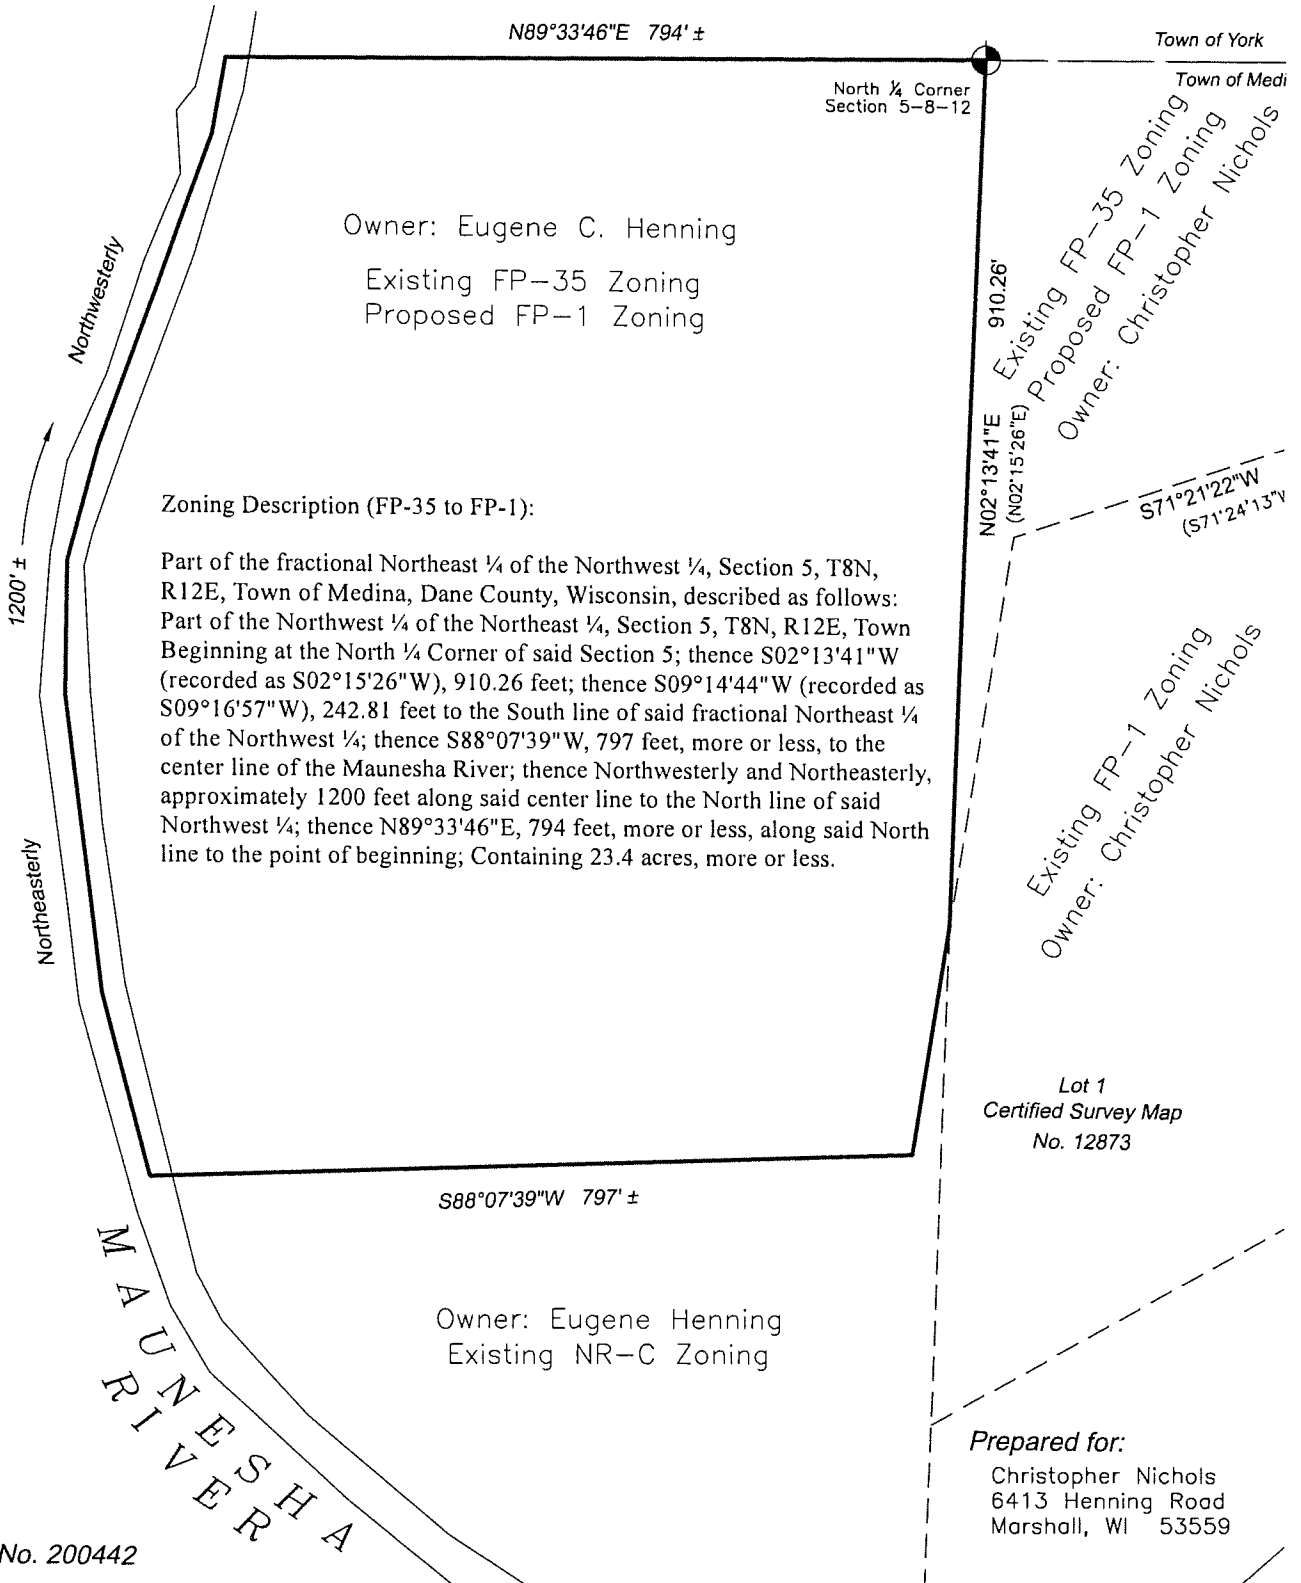 N89°33'46"E 794' ±
Town of York
Town of Medi
North ¼ Corner
Section 5-8-12
Existing FP-35 Zoning
Proposed FP-1 Zoning
Owner: Christopher Nichols
Owner: Eugene C. Henning
Existing FP-35 Zoning
Proposed FP-1 Zoning
Northwesterly
910.26'
N02°13'41"E
(N02°15'26"E)
S71°21'22"W
(S71°24'13"W
1200' ±
Zoning Description (FP-35 to FP-1):
Part of the fractional Northeast ¼ of the Northwest ¼, Section 5, T8N,
R12E, Town of Medina, Dane County, Wisconsin, described as follows:
Part of the Northwest ¼ of the Northeast ¼, Section 5, T8N, R12E, Town
Beginning at the North ¼ Corner of said Section 5; thence S02°13'41"W
(recorded as S02°15'26"W), 910.26 feet; thence S09°14'44"W (recorded as
S09°16'57"W), 242.81 feet to the South line of said fractional Northeast ¼
of the Northwest ¼; thence S88°07'39"W, 797 feet, more or less, to the
center line of the Maunesha River; thence Northwesterly and Northeasterly,
approximately 1200 feet along said center line to the North line of said
Northwest ¼; thence N89°33'46"E, 794 feet, more or less, along said North
line to the point of beginning; Containing 23.4 acres, more or less.
Existing FP-1 Zoning
Owner: Christopher Nichols
Northeasterly
Lot 1
Certified Survey Map
No. 12873
S88°07'39"W 797' ±
MAUNESHA
RIVER
Owner: Eugene Henning
Existing NR-C Zoning
Prepared for:
Christopher Nichols
6413 Henning Road
Marshall, WI 53559
No. 200442